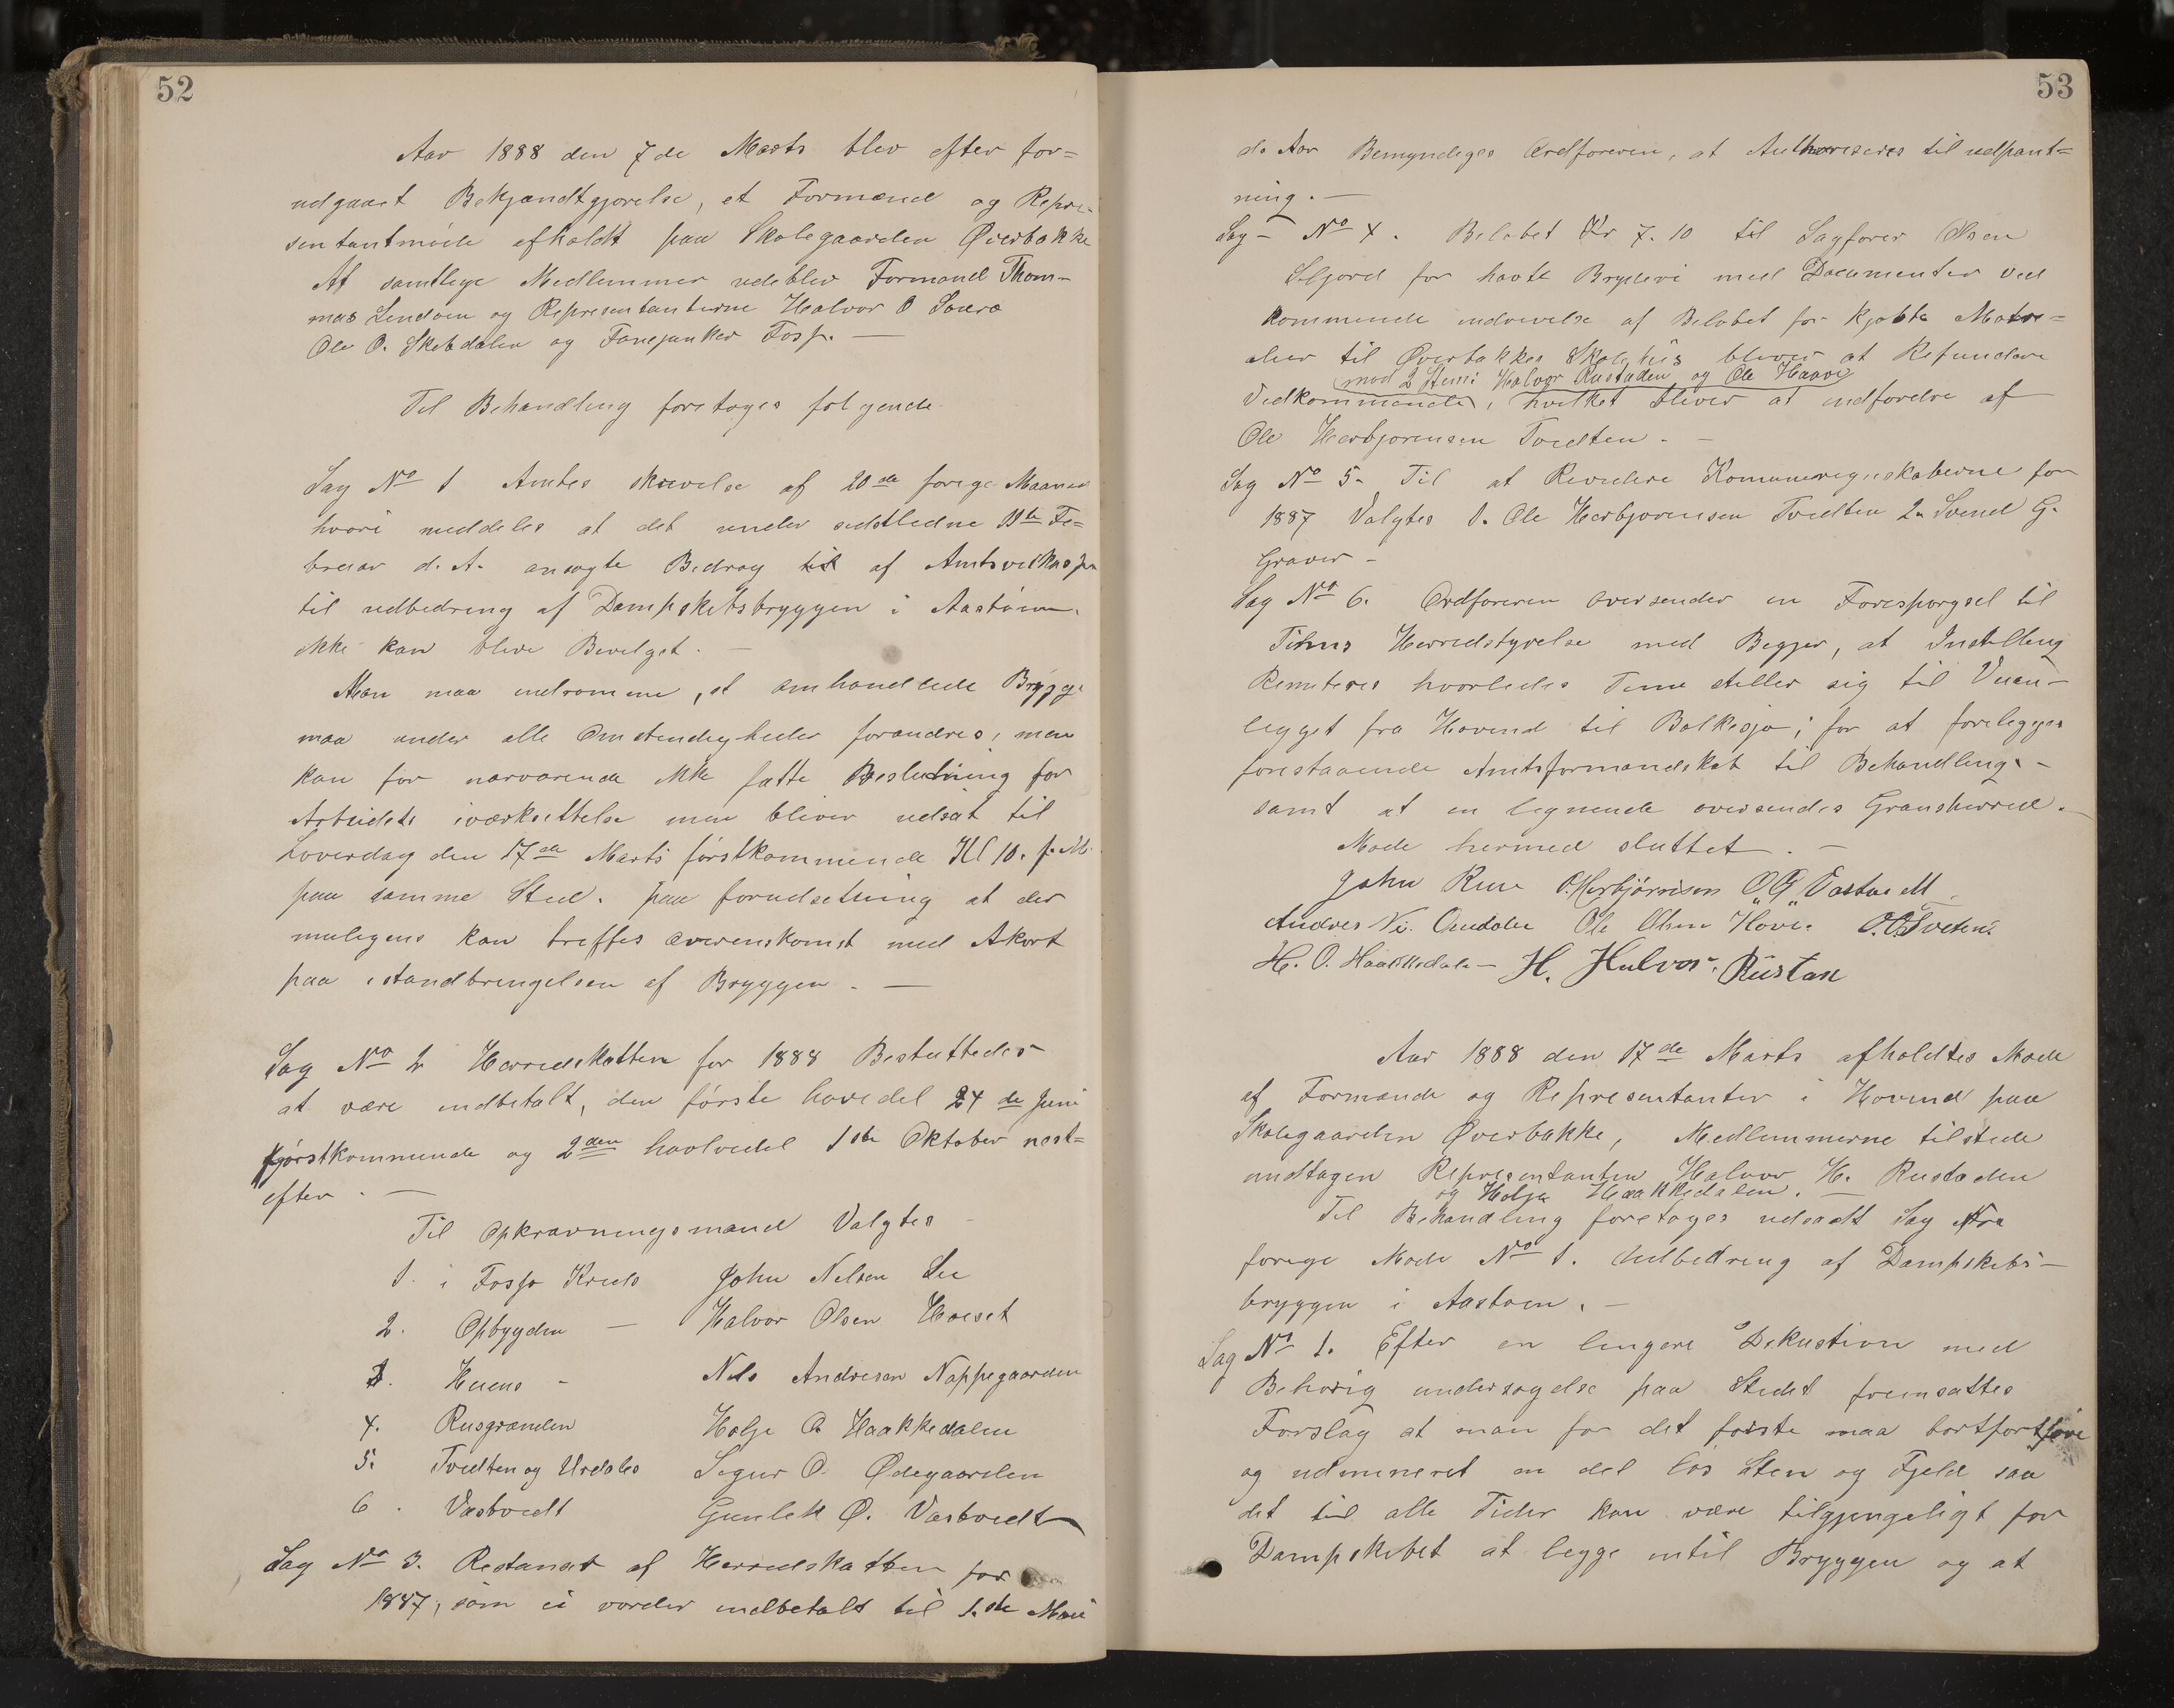 52
Aar 1888 den 7de Marts blev efter for=
udgaaet Bekjandtgjorelse, et Formænd og Repre-
sentantmøde afholdt paa Skolegaarden Øverbakke
Af samtlige Medlemmer udeblev Formand Thom-
mas Lendoen og Representanterne Halvor O
Ole O. Skebdalen og Fanejunker Fosse. —
Til Behandling foretoges følgende.
Sag No 1 Amtes skrivelse af 20de forige Maaned
hvori meddeles at det under sidstledne 11te Fe=
bruar d. A. ansøgte Bedrag til af Amtsveikassen
til udbedring af Dampskibsbryggen i Aastøen.
ikke kan blive Bevilget. —
Man maa indrømme, at omhandlede Brygge
maa under alle Omstendigheder forandres, men
kan for nærværende ikke fatte Beslutning for
Arbeidets iværksettelse men bliver udsat til
Loverdag den 17de Marts førstkommende Kl 10. f. M.
paa samme Sted. paa forudsetning at der
muligens kan treffes overenskomst med Akort
paa istandbringelsen af Bryggen. —
Sag No 2 Herredskatten for 1888 Besluttedes
at være indbetalt, den første havedel 24de Juni
førstkommende og 2den haolvedel 1ste Oktober nest=
efter. —
Til Opkrævningsmænd Valgtes
1. i Fosso Kreds John Nilsen Lie
2. Opbygden — Halvor Olsen Hoeset
3. Huens - Nels Andresen Nappegaarden
4. Rusgrænden Holje O. Haakkedalen
5. Tvedten og Urdales Segur O. Ødegaarden
6. Vasbvedt Gunlek Ø. Vasbvedt
Sag No 3. Restanset af Herredskatten for
1887, som ei vorder indbetalt til 1.ste Mai
53
ds Aar Bemyndiges Ordføreren, at Authoriseres til udpant=
ning. —
Sag - No 4. Beløbet Kr 7.10 til Sagfører Olsen
Seljord for havte Bryderi med Documenter ved
kommende inddrivelse af Beløbet for kjøbte Matri=
alier til Øverbakkes Skolehus bliver at Refundere
mod 2 Stem: Halvor Rustaden og Ole Haave
Vedkommende, hvilket bliver at indfordre af
Ole Herbjornsen Tvedten. —
Sag No 5. Til at Revidere Komuneregnskaberne for
1887 Valgtes 1. Ole Herbjornsen Tvedten 2. Svend G.
Graver -
Sag No 6. Ordføreren oversender en Forespørgsel til
Tinns Herredstyrelse med Begjer, at Instilling
Remiteres hvorledes Tinn stiller sig til Veian-
legget fra Hovind til Bolkesjø; for at forelegges
forestaaende Amtsformandskab til Behandling. —
samt at en lignende oversendes Gransherred. —
Møde hermed sluttet. —
John Rue O. Herbjørnsen O. G. Vastveit
Andres Ni. Ourdalen Ole Olsen Hove. O. O. Tveten.
H. O. Haakkedale — H. Halvor. Rustan
Aar 1888 den 17de Marts afholdtes Møde
af Formænd og Representanter i Hovind paa
Skolegaarden Øverbakke, Medlemmerne tilstede
undtagen Representanten Halvor H. Rustaden
og Holje Haakkedalen. —
Til Behandling foretoges udsadt Sag fra
forige Møde No 1. Udbedring af Dampskibs-
bryggen i Aastøen. —
Sag No 1. Efter en lengere Diskustion med
Behørig undersøgelse paa Stedet fremsattes
Forslag at man for det første maa bortfortføre
og udmineret en del løs Sten og Fjeld saa
det til alle Tider kan være tilgjengeligt for
Dampskibet at legge intil Bryggen og at